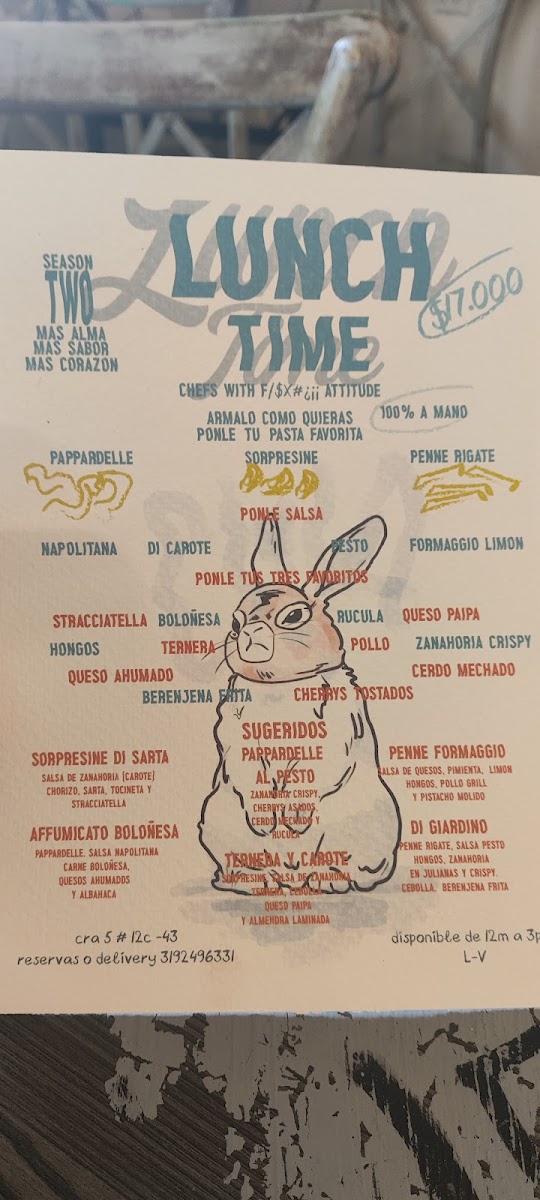 Lunch
Time
LUNCH
TIME
SEASON
TWO
MAS ALMA
MAS SABOR
MAS CORAZON
$17.000
CHEFS WITH F/$X#¿¡¡ ATTITUDE
ARMALO COMO QUIERAS
PONLE TU PASTA FAVORITA
100% A MANO
PAPPARDELLE SORPRESINE PENNE RIGATE
PONLE SALSA
NAPOLITANA DI CAROTE PESTO FORMAGGIO LIMON
PONLE TUS TRES FAVORITOS
STRACCIATELLA BOLOÑESA RUCULA QUESO PAIPA
HONGOS TERNERA POLLO ZANAHORIA CRISPY
QUESO AHUMADO CERDO MECHADO
BERENJENA FRITA CHERRYS TOSTADOS
SUGERIDOS
SORPRESINE DI SARTA
SALSA DE ZANAHORIA (CAROTE)
CHORIZO, SARTA, TOCINETA Y
STRACCIATELLA
AFFUMICATO BOLOÑESA
PAPPARDELLE, SALSA NAPOLITANA
CARNE BOLOÑESA,
QUESOS AHUMADOS
Y ALBAHACA
PAPPARDELLE
AL PESTO
ZANAHORIA CRISPY,
CHERRYS ASADOS,
CERDO MECHADO Y
RUCULA
TERNERA Y CAROTE
SORPRESINE, SALSA DE ZANAHORIA
TERNERA, CEBOLLA
QUESO PAIPA
Y ALMENDRA LAMINADA
PENNE FORMAGGIO
SALSA DE QUESOS, PIMIENTA, LIMON
HONGOS, POLLO GRILL
Y PISTACHO MOLIDO
DI GIARDINO
PENNE RIGATE, SALSA PESTO
HONGOS, ZANAHORIA
EN JULIANAS Y CRISPY.
CEBOLLA, BERENJENA FRITA
cra 5 # 12c -43
reservas o delivery 3192496331
disponible de 12m a 3p
L-V